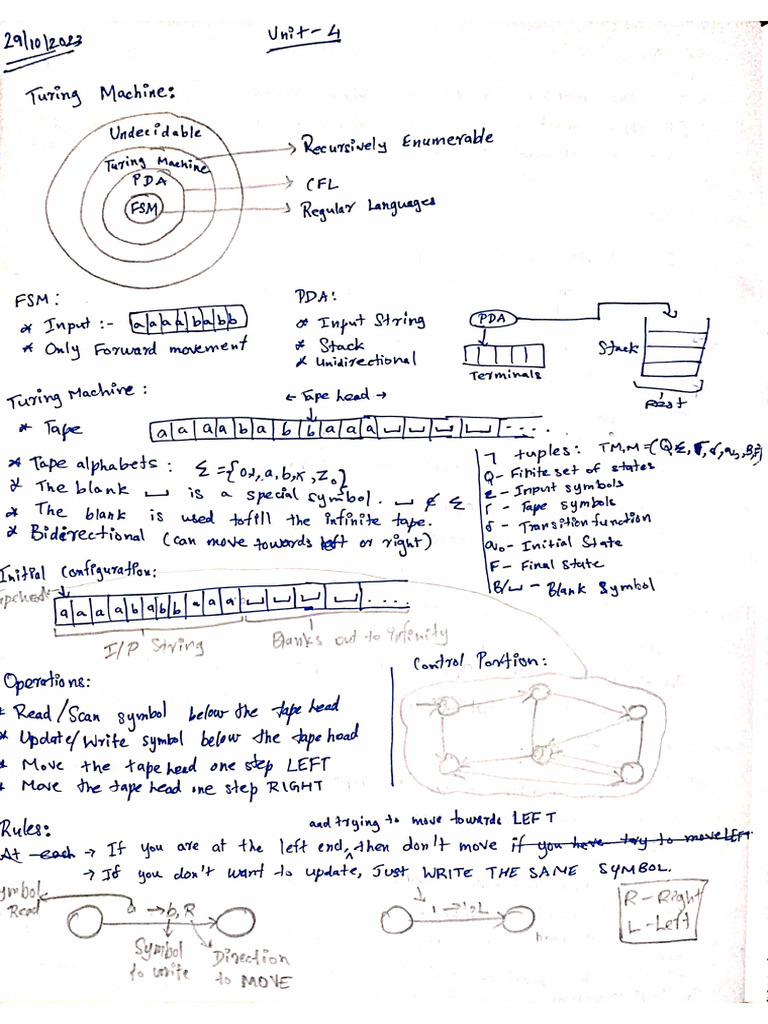 29/10/2023
Unit-4
Turing Machine:
Undecidable
Turing Machine
PDA
FSM
Recursively Enumerable
CFL
Regular Languages
FSM:
* Input :- a a a a b a b b
* Only Forward movement
PDA:
* Input String
* Stack
* Unidirectional
PDA
Terminals
Stack
Turing Machine:
← Tape head →
* Tape a a a a b a b b a a a ⊔ ⊔ ⊔ ⊔ ....
* Tape alphabets: Σ={0,1,a,b,x,Z₀}
* The blank ⊔ is a special symbol. ⊔ ∉ Σ
* The blank is used to fill the infinite tape.
* Bidirectional (can move towards left or right)
7 tuples: TM, M=(Q, Σ, Γ, δ, q₀, B, F)
Q - Finite set of states
Σ - Input symbols
Γ - Tape symbols
δ - Transition function
q₀ - Initial State
F - Final State
B/⊔ - Blank Symbol
Initial Configuration:
a a a a b a b b a a a ⊔ ⊔ ⊔ ⊔ ....
I/P String
Blanks out to infinity
Operations:
* Read/Scan symbol below the tape head
* Update/Write symbol below the tape head
* Move the tape head one step LEFT
* Move the tape head one step RIGHT
Control Portion:
Rules:
and trying to move towards LEFT
At each → If you are at the left end, then don't move if you have try to move LEFT
→ If you don't want to update, JUST WRITE THE SAME SYMBOL.
Symbol
Read
a → b, R
Symbol
to write
Direction
to MOVE
R - Right
L - Left